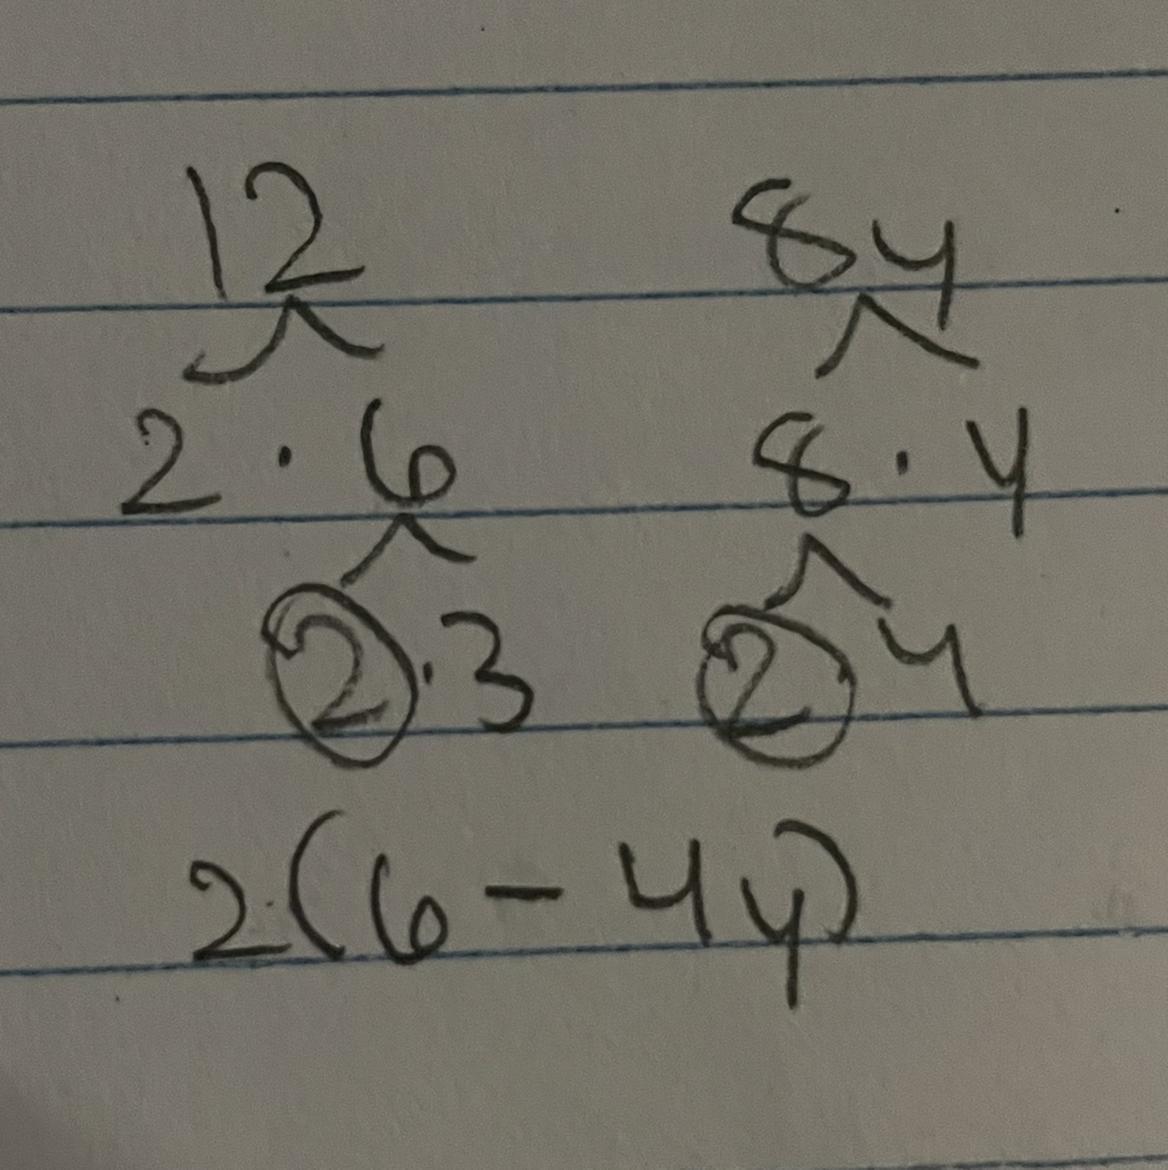 12 8y
2 · 6 8 · y
2 · 3 2 4
2(6 - 4y)